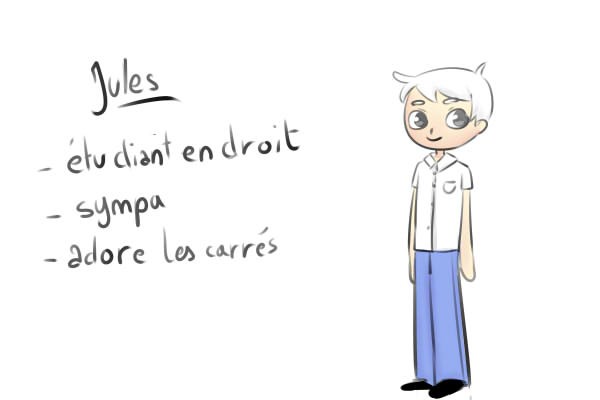 Jules
- étudiant en droit
- sympa
- adore les carrés